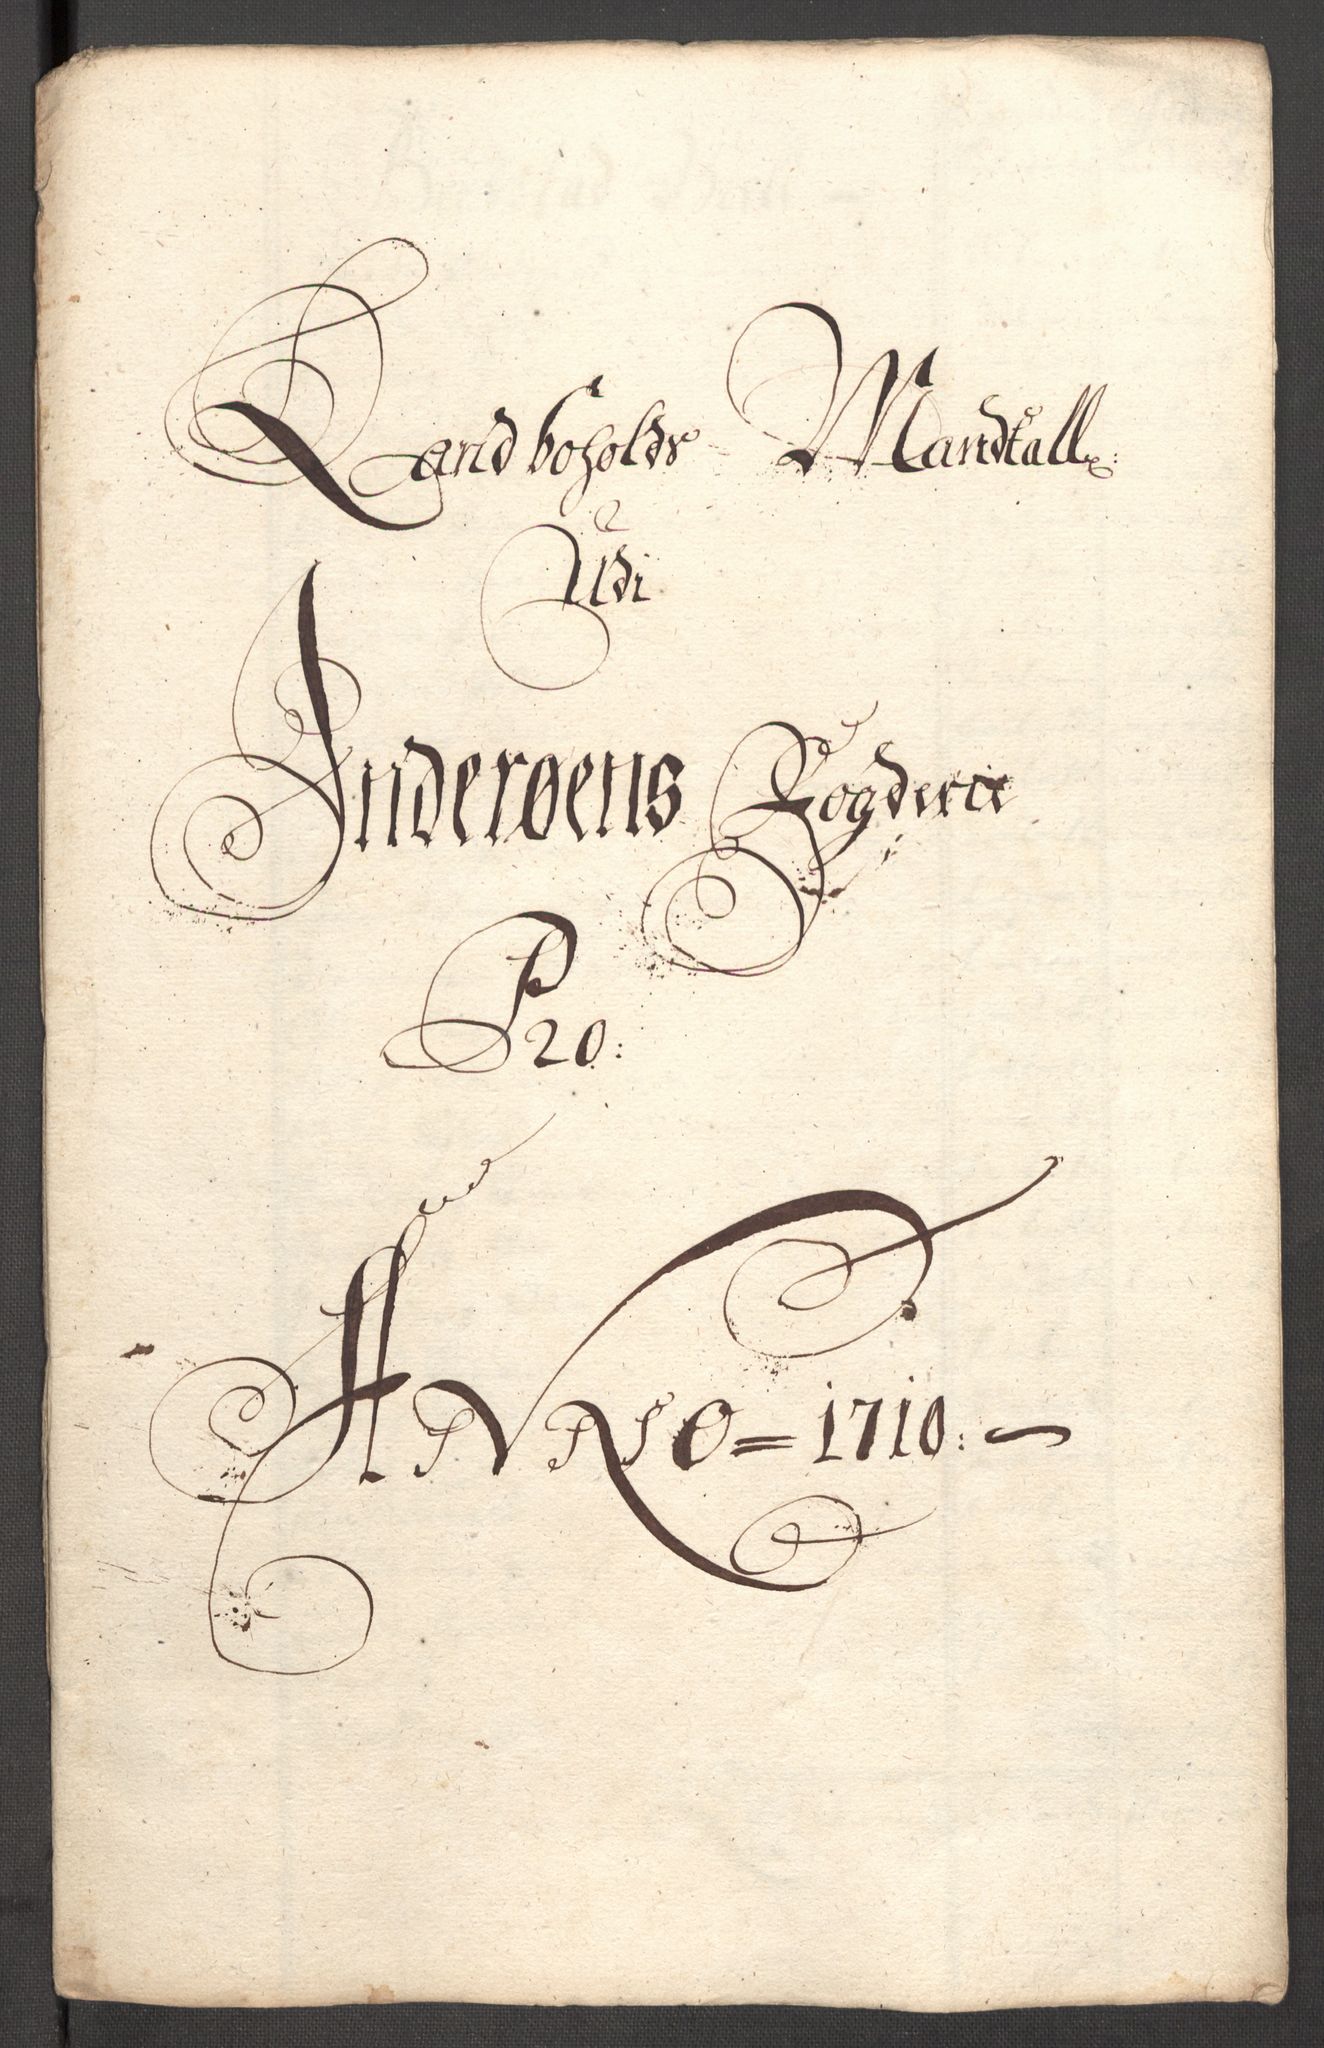 Landboholds Mandtall
Udi
Inderøens Fogderie
Pro:
ANNO = 1710: